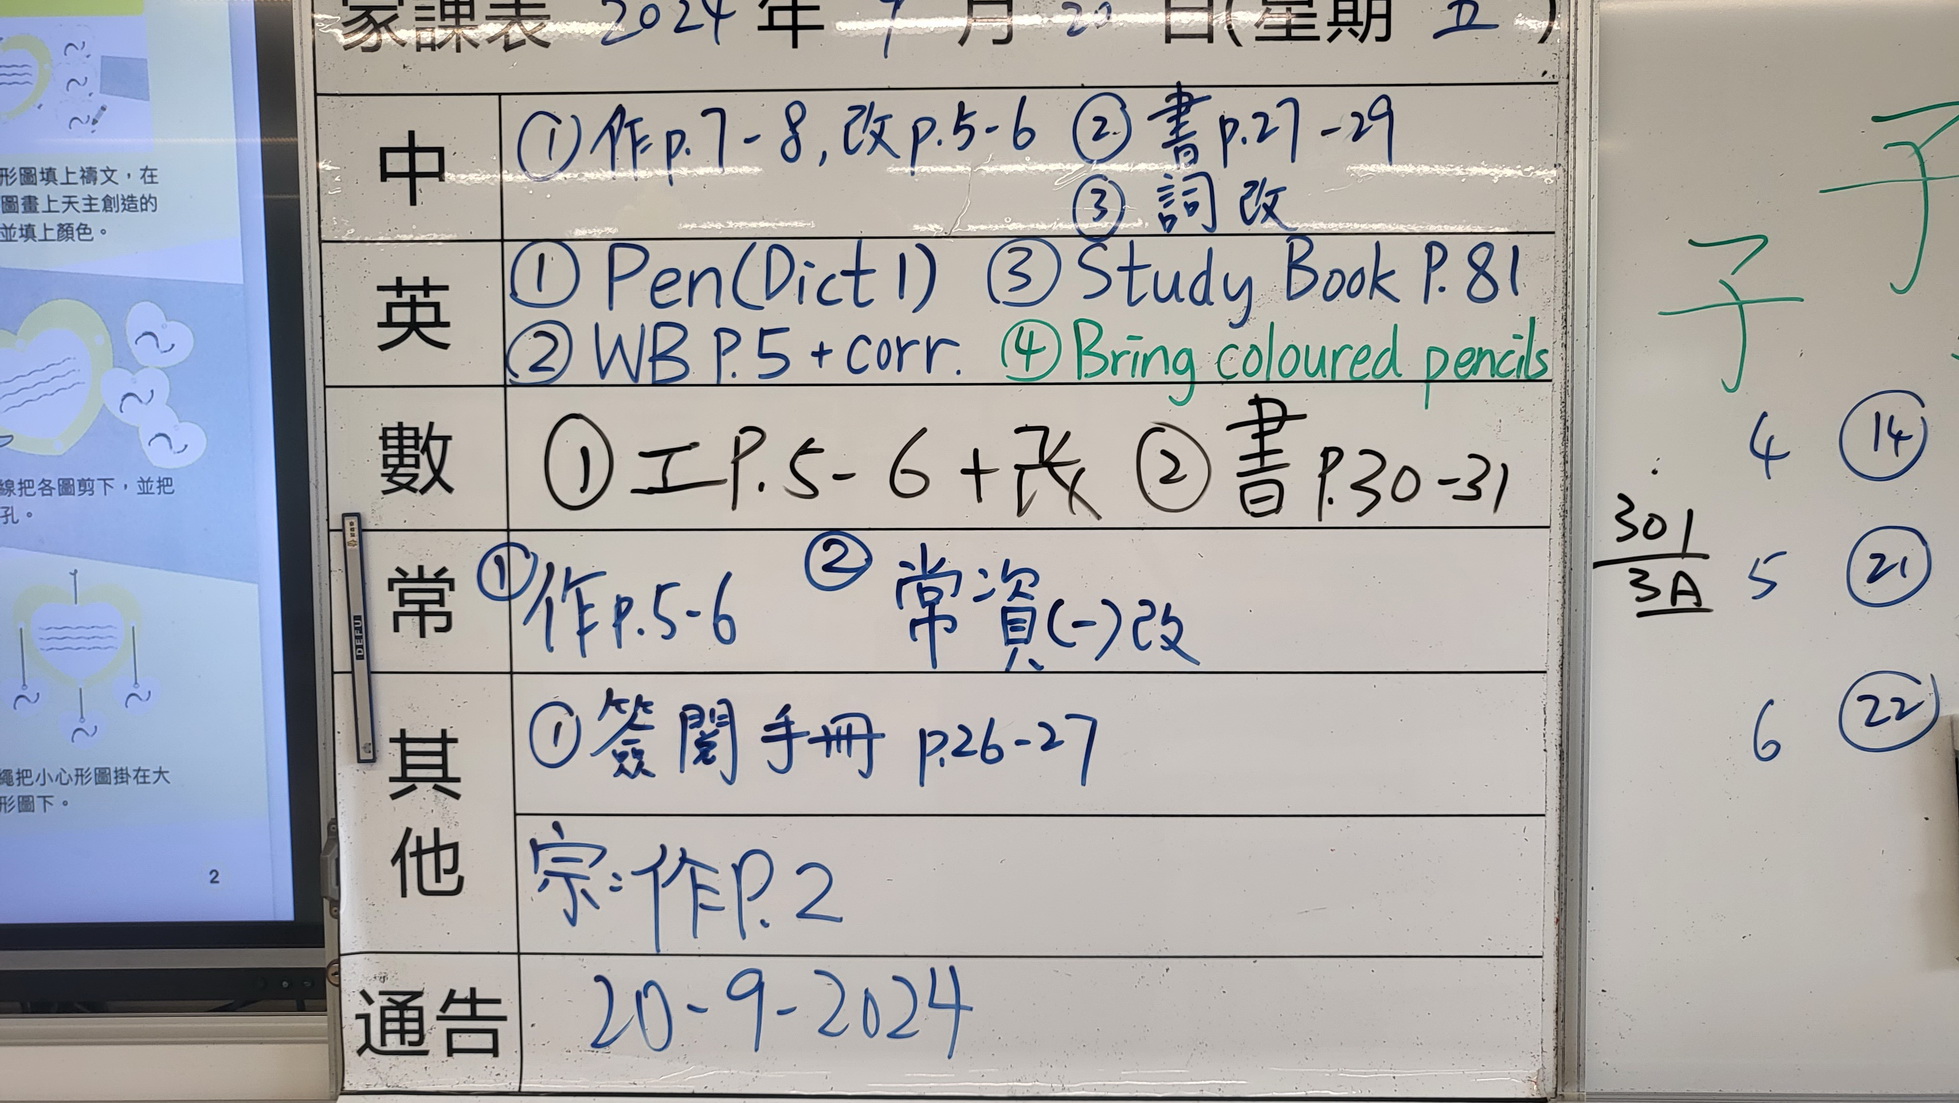 形圖填上禱文，在
圖畫上天主創造的
並填上顏色。
線把各圖剪下，並把
孔。
繩把小心形圖掛在大
形圖下。
2
家課表 2024 年 9 月 20 日(星期 五 )
中
① 作p.7-8,改p.5-6 ② 書p.27-29
③ 詞改
英
① Pen(Dict 1) ③ Study Book P.81
② WB P.5 + corr. ④ Bring coloured pencils
數
① 工P.5-6 + 改 ② 書P.30-31
常
① 作p.5-6 ② 常資(一)改
其他
① 簽閱手冊 p.26-27
宗:作P.2
通告
20-9-2024
DEFU
子
子
4 14
301
3A
5 21
6 22